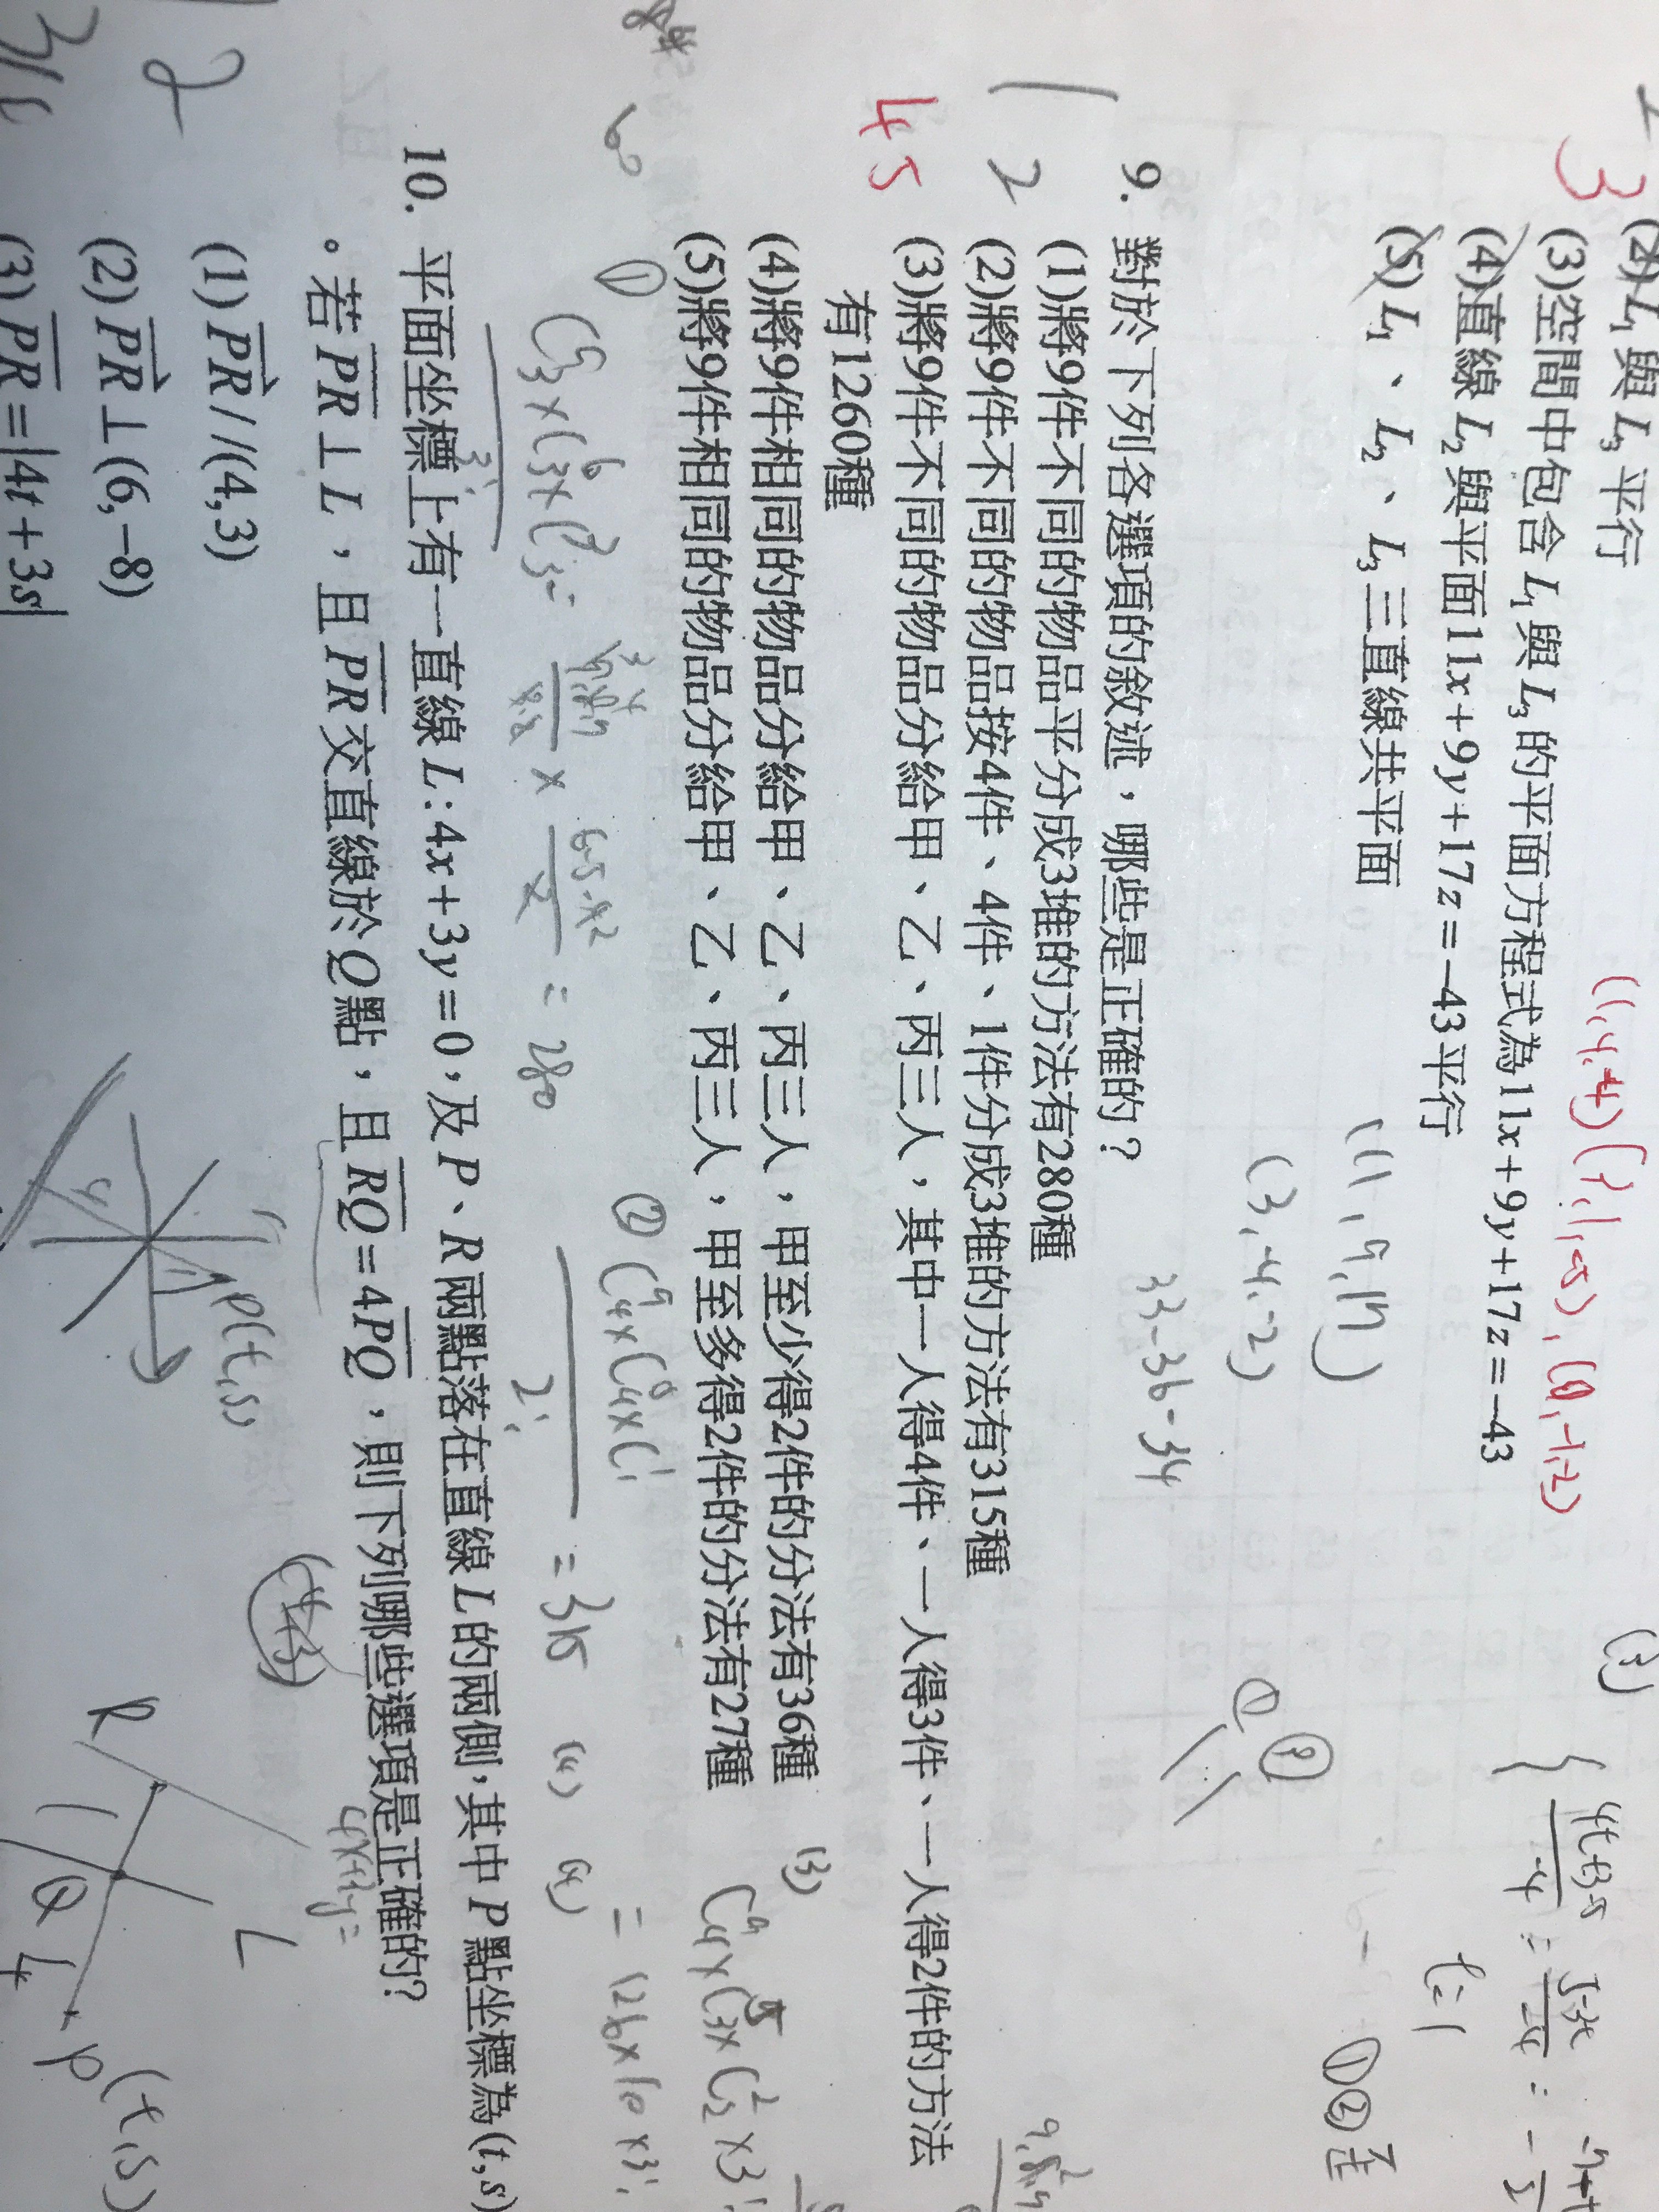 3
(2) L₁ 與 L₃ 平行
(3)空間中包含 L₁ 與 L₃ 的平面方程式為11x+9y+17z=-43
(4)直線 L₂ 與平面11x+9y+17z=-43平行
(5) L₁、L₂、L₃ 三直線共平面
(11, 9, 17)
(3, -4, -2)
33-36-34
t=1
9. 對於下列各選項的敘述，哪些是正確的？
(1)將9件不同的物品平分成3堆的方法有280種
1 2
(2)將9件不同的物品按4件、4件、1件分成3堆的方法有315種
(3)將9件不同的物品分給甲、乙、丙三人，其中一人得4件、一人得3件、一人得2件的方法
有1260種
45
(4)將9件相同的物品分給甲、乙、丙三人，甲至少得2件的分法有36種
(5)將9件相同的物品分給甲、乙、丙三人，甲至多得2件的分法有27種
= 280
= 315
= 126×10×3!
10. 平面坐標上有一直線 L:4x+3y=0，及 P、R 兩點落在直線 L 的兩側，其中 P 點坐標為(t,s)
。若 PR⊥L，且 PR 交直線於 Q 點，且 RQ=4PQ，則下列哪些選項是正確的？
(1) PR//(4,3)
(2) PR⊥(6,-8)
(3) PR=|4t+3s|
P(t,s)
R
L
Q
P(t,s)